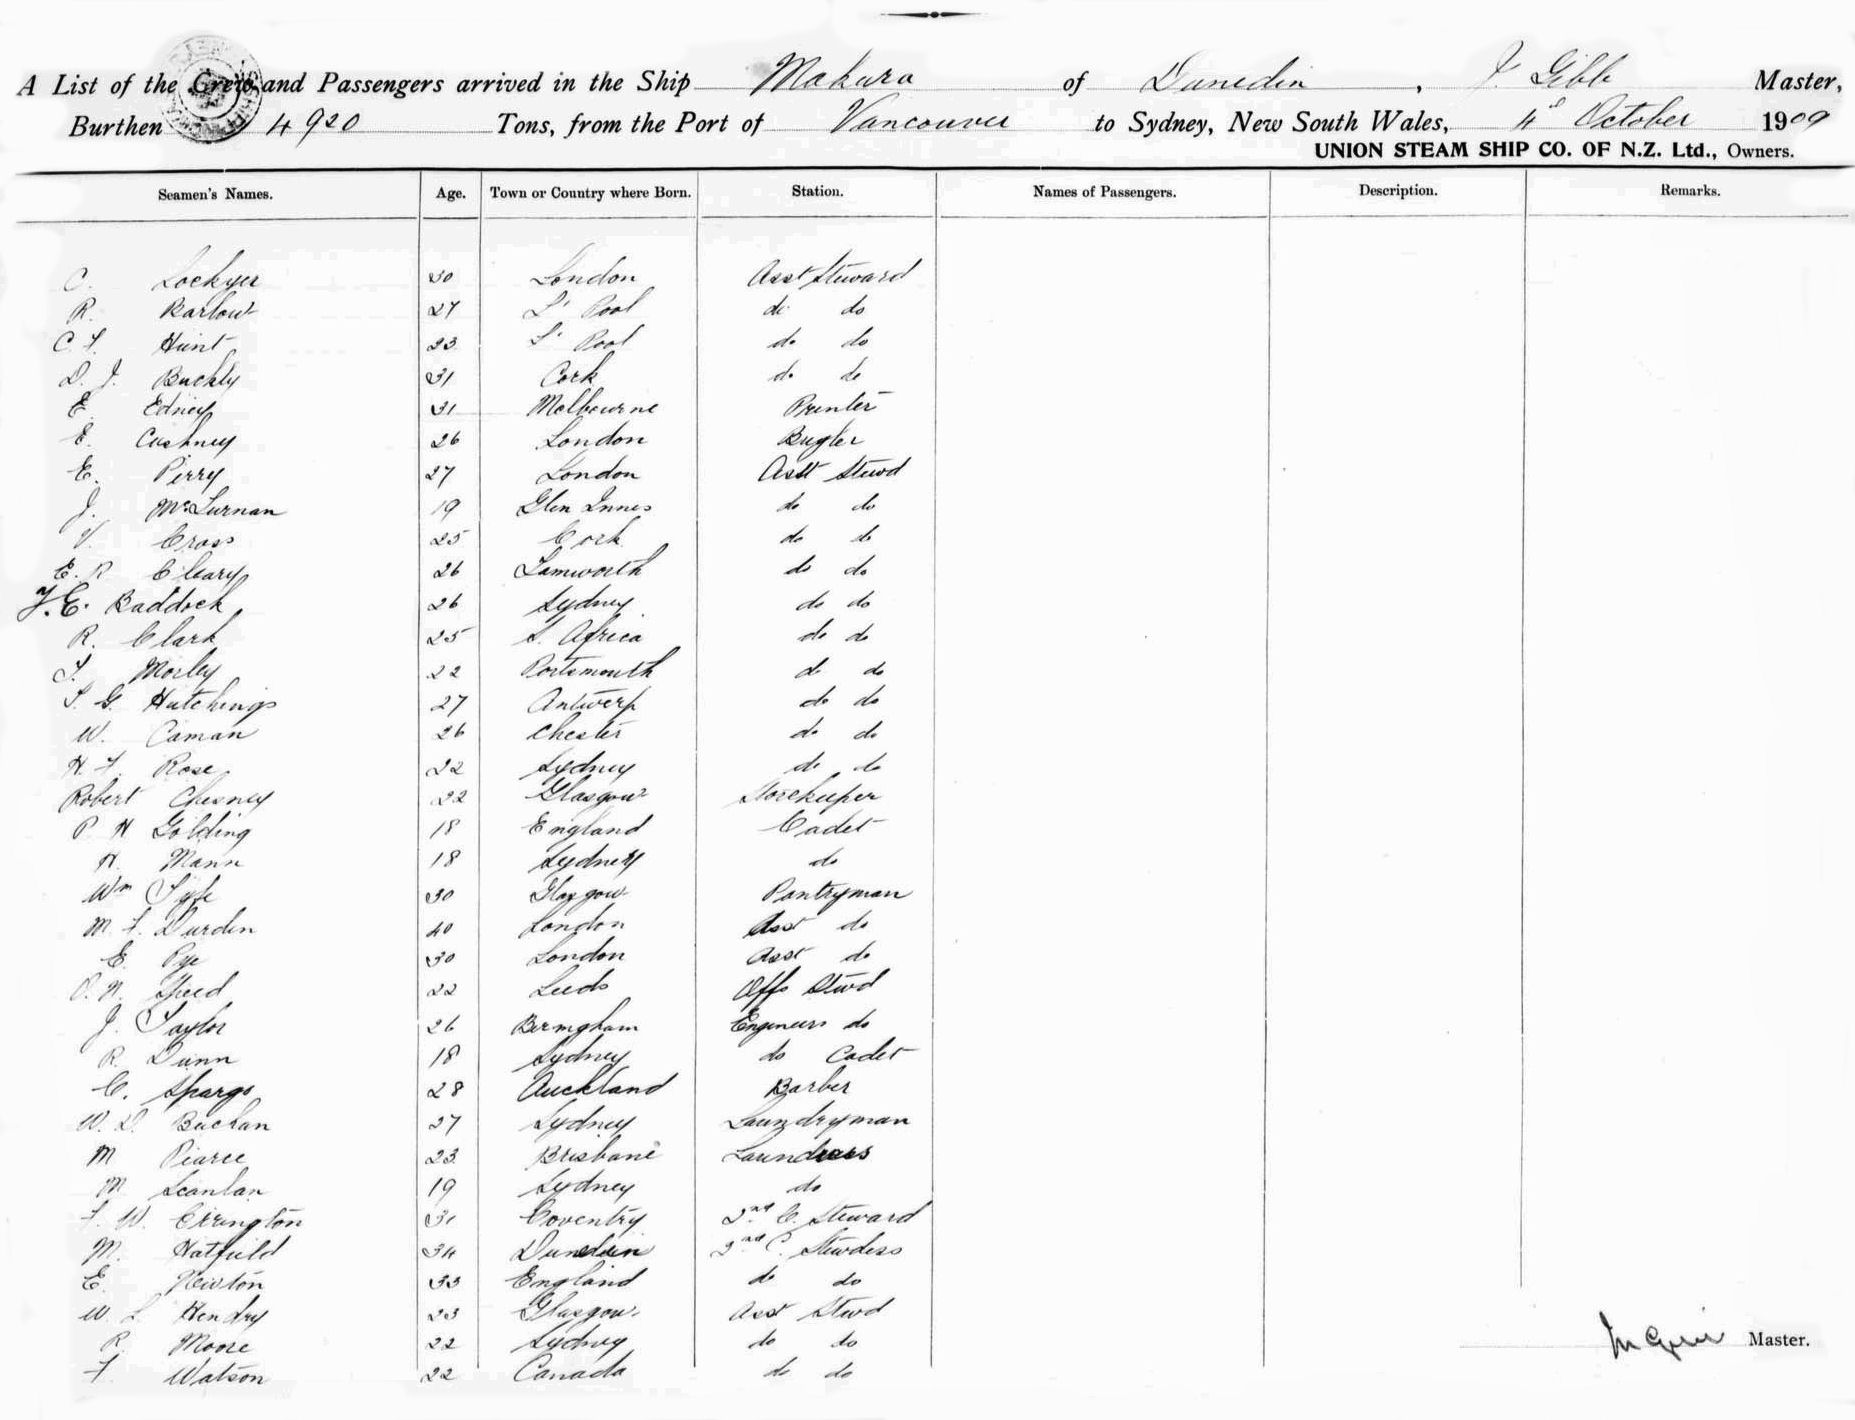 A List of the Crew and Passengers arrived in the Ship Makura of Dunedin, J. Gibb Master,
Burthen 4920 Tons, from the Port of Vancouver to Sydney, New South Wales, 4th October 1909
UNION STEAM SHIP CO. OF N.Z. Ltd., Owners.
Seamen's Names. Age. Town or Country where Born. Station. Names of Passengers. Description. Remarks.
C. Lockyer 30 London Asst Steward
R. Barlow 27 L'Pool do do
C. F. Hunt 23 L'Pool do do
D. J. Buckly 31 Cork do do
E. Edney 31 Melbourne Printer
E. Cushney 26 London Bugler
E. Perry 27 London Asst Stewd
J. McLurnan 19 Glen Innes do do
V. Cross 25 Cork do do
E. R Cleary 26 Tamworth do do
F.E. Baddock 26 Sydney do do
R. Clark 25 S. Africa do do
T. Morley 22 Portsmouth do do
S. G. Hutchings 27 Antwerp do do
W. Caman 26 Chester do do
H. F. Rose 22 Sydney do do
Robert Chesney 22 Glasgow Storekeeper
P H Golding 18 England Cadet
H. Mann 18 Sydney do
Wm Fyfe 30 Glasgow Pantryman
M. F. Durden 40 London Asst do
E. Pye 30 London Asst do
O. N. Speed 22 Leeds Offs Stwd
J. Taylor 26 Birmgham Engineers do
R. Dunn 18 Sydney do Cadet
C. Spargo 28 Auckland Barber
W. D. Buchan 27 Sydney Laundryman
M Pearce 23 Brisbane Laundress
M. Scanlan 19 Sydney do
F. W. Errington 31 Coventry 2nd C. Steward
M. Hatfield 34 Dunedin 2nd C. Stewdess
E. Newton 33 England do do
W. L. Hendry 23 Glasgow. Asst Stwd
R Moore 22 Sydney do do
F. Watson 22 Canada do do
Master.